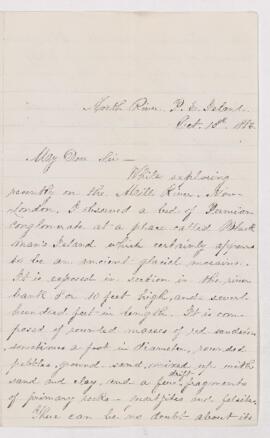 North River, P. E. Island.
Oct. 15th
My Dear Sir —
While exploring
recently on the Mill River, New-
London, I observed a bed of Permian
conglomate at a place called Black-
man's Island which certainly appears
to be an ancient glacial moraine.
It is exposed in section in the river
bank 8 or 10 feet high, and several
hundred feet in length. It is com-
posed of rounded masses of red sandstone
sometimes a foot in diameter, rounded
pebbles, ground sand, mixed up with
sand and clay, and a few drift fragments
of primary rocks — and felsites.
There can be no doubt about its